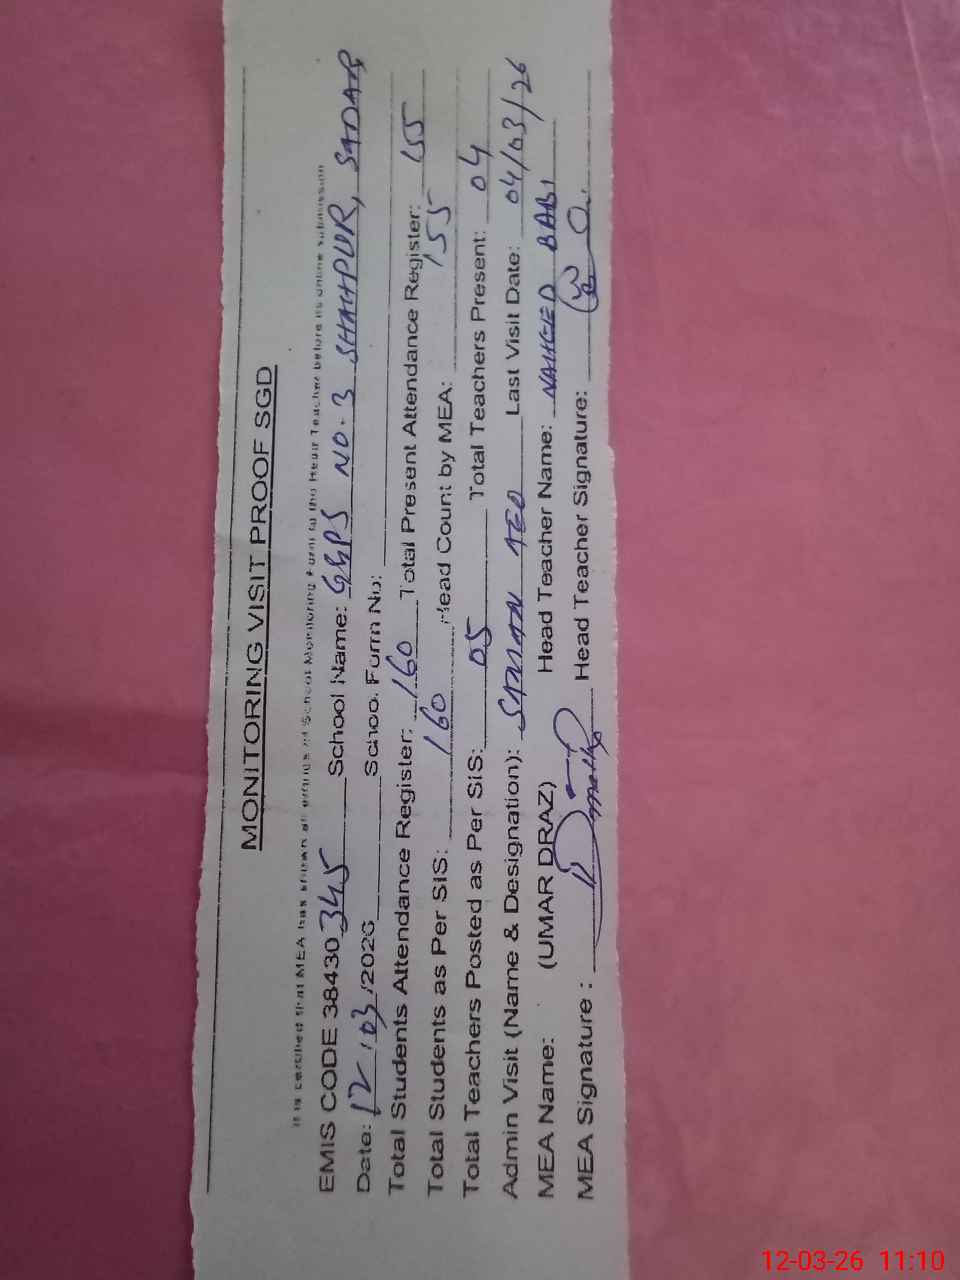 MONITORING VISIT PROOF SGD
It is certified that MEA has shown all entries of School Monitoring Form to the Head Teacher before its online submission
EMIS CODE 38430345 School Name: GGPS NO. 3 SHAHPUR, SADAR
Date: 12/03/2026 School Form No:
Total Students Attendance Register: 160 Total Present Attendance Register: 155
Total Students as Per SIS: 160 Head Count by MEA: 155
Total Teachers Posted as Per SIS: 05 Total Teachers Present: 04
Admin Visit (Name & Designation): AEO Last Visit Date: 04/03/26
MEA Name: (UMAR DRAZ) Head Teacher Name:
MEA Signature: Head Teacher Signature:
12-03-26 11:10